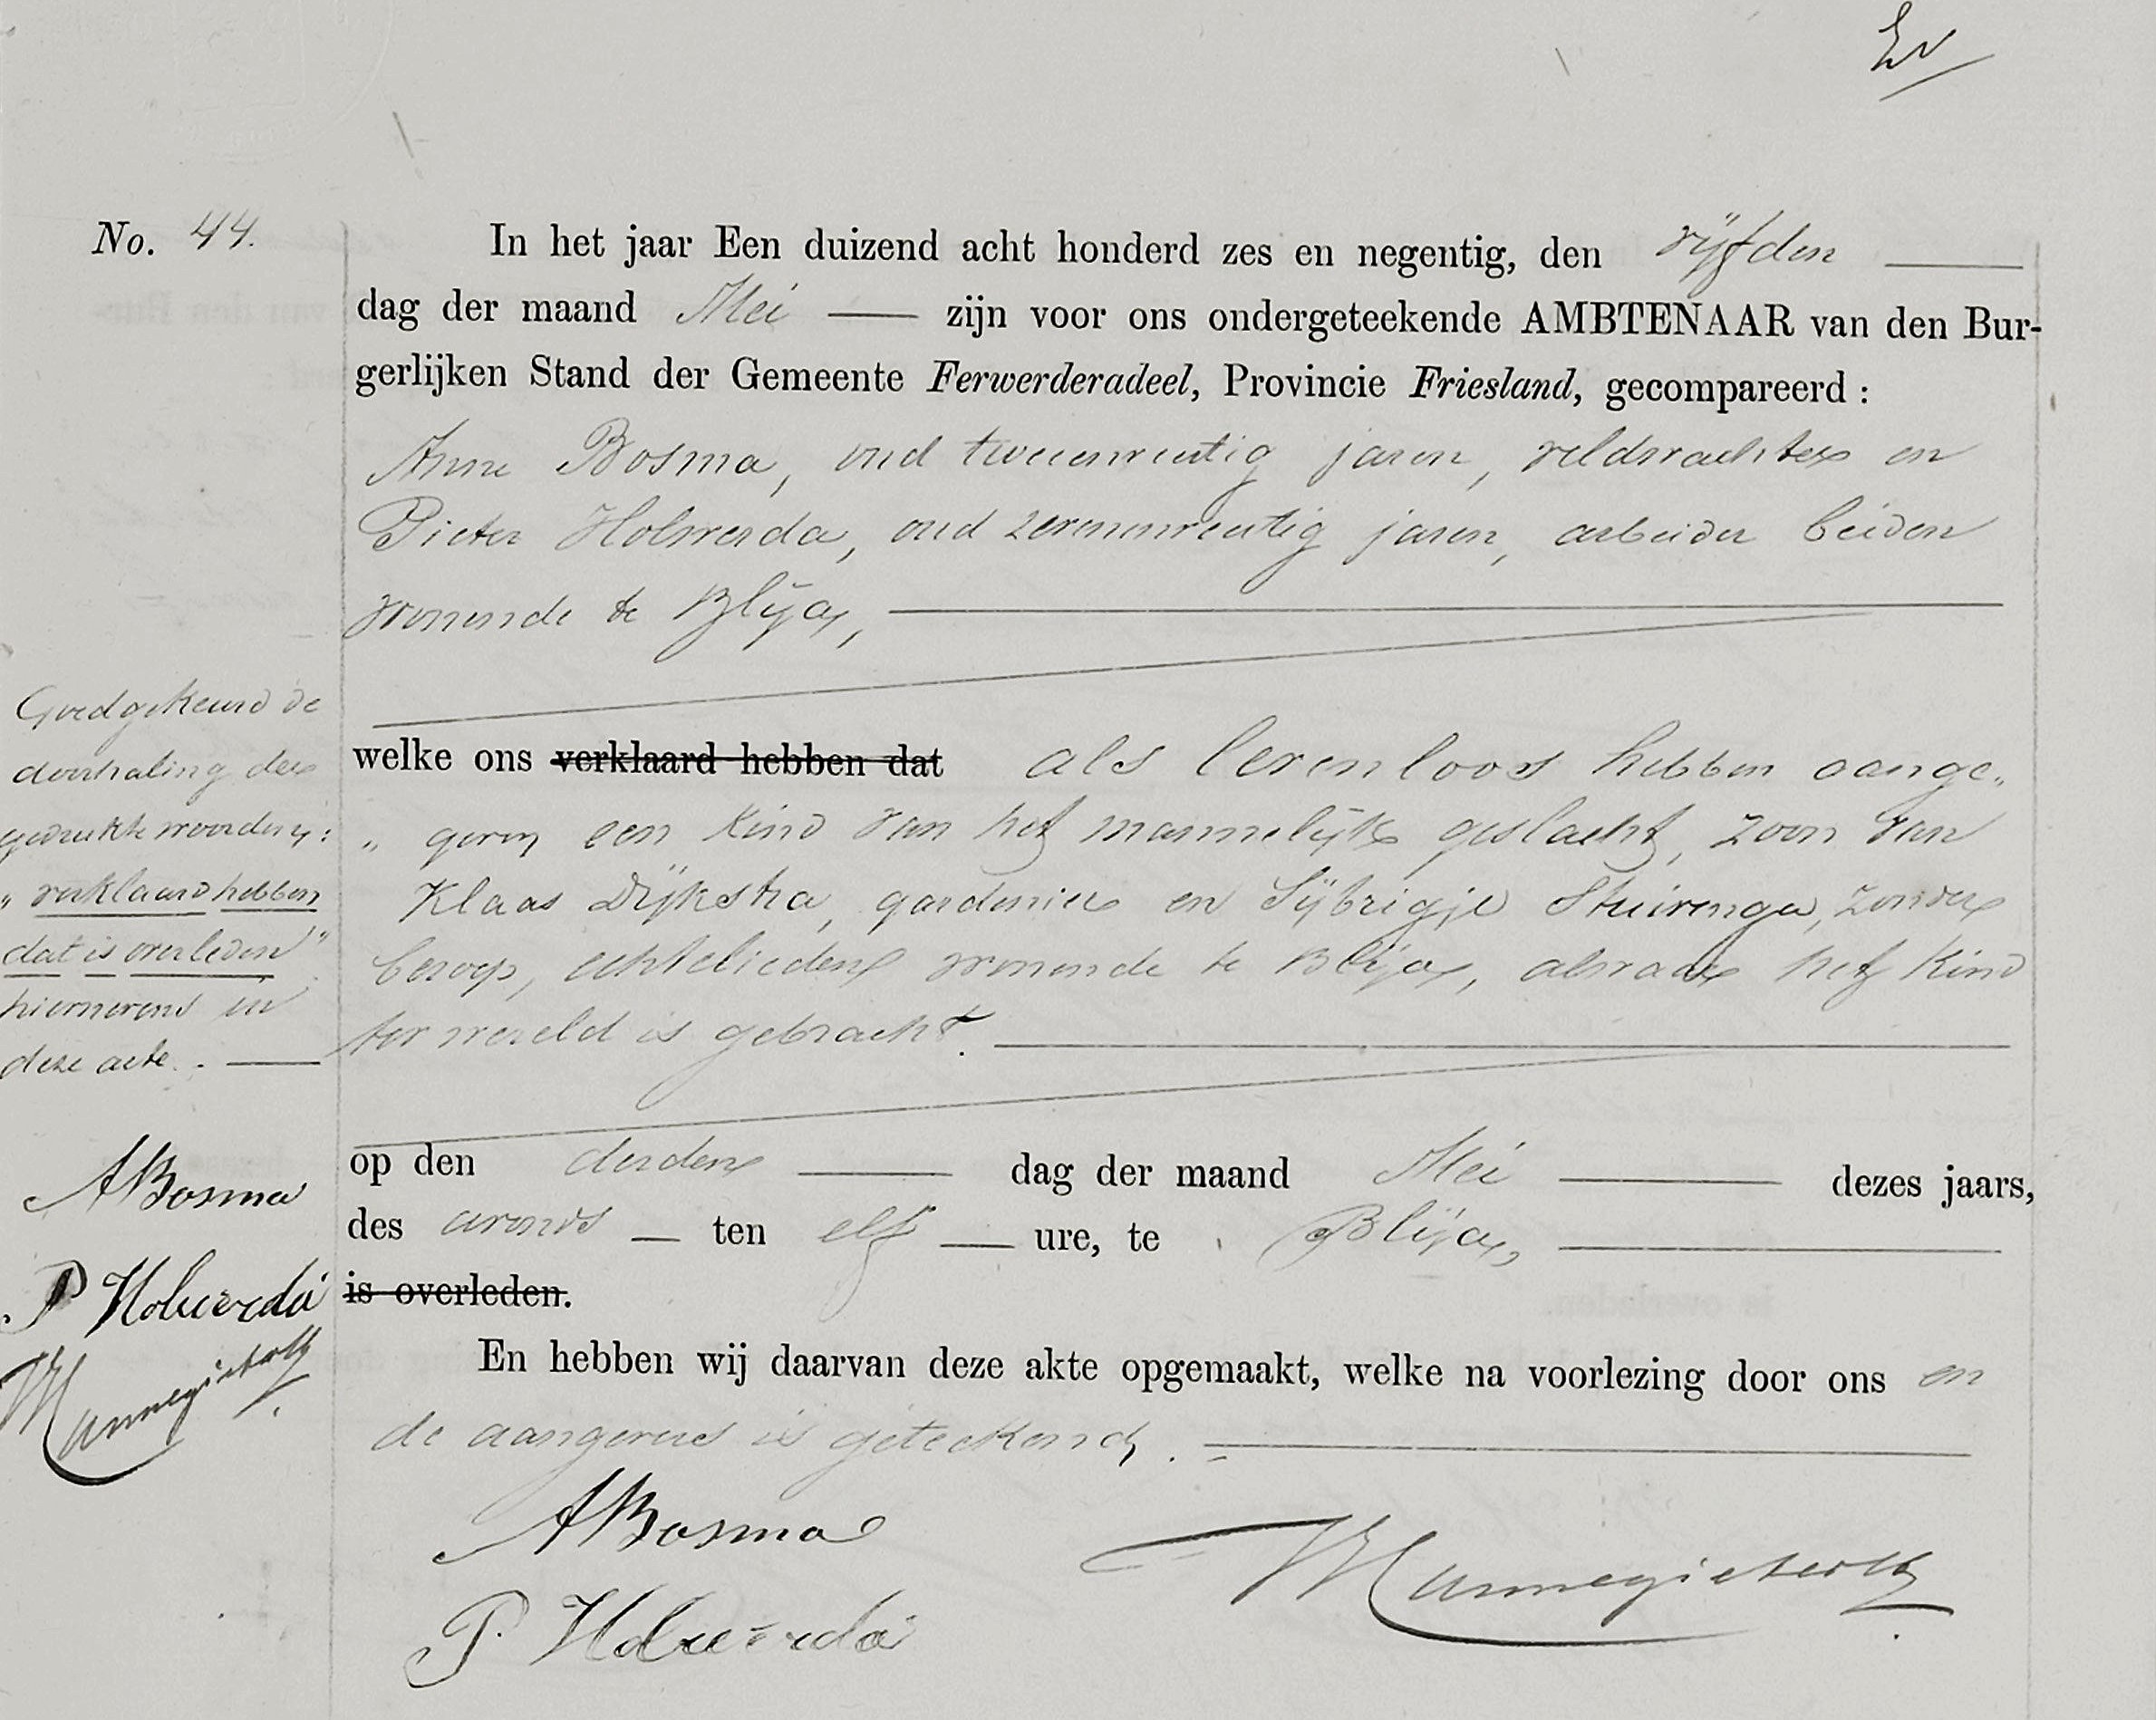 No. 44.
In het jaar Een duizend acht honderd zes en negentig, den vijfden
dag der maand Mei zijn voor ons ondergeteekende AMBTENAAR van den Bur-
gerlijken Stand der Gemeente Ferwerderadeel, Provincie Friesland, gecompareerd :
Anne Bosma, oud tweeenveertig jaren, veldwachter en
Pieter Holwerda, oud zevenenveertig jaren, arbeider beiden
wonende te Blija,
welke ons verklaard hebben dat als levenloos hebben aange„
„ geven een kind van het mannelijk geslacht, zoon van
Klaas Dijkstra, gardenier en Sijbrigje Stuivenga, zonder
beroep, echtelieden wonende te Blija, alwaar het kind
ter wereld is gebracht.
op den derden dag der maand Mei dezes jaars,
des avonds ten elf ure, te Blija,
is overleden.
En hebben wij daarvan deze akte opgemaakt, welke na voorlezing door ons en
de aangevers is geteekend.
ABosma
P. Holwerda
Goedgekeurd de
doorhaling der
gedrukte woorden:
„ verklaard hebben
dat is overleden"
hiernevens in
deze acte.
ABosma
P Holwerda